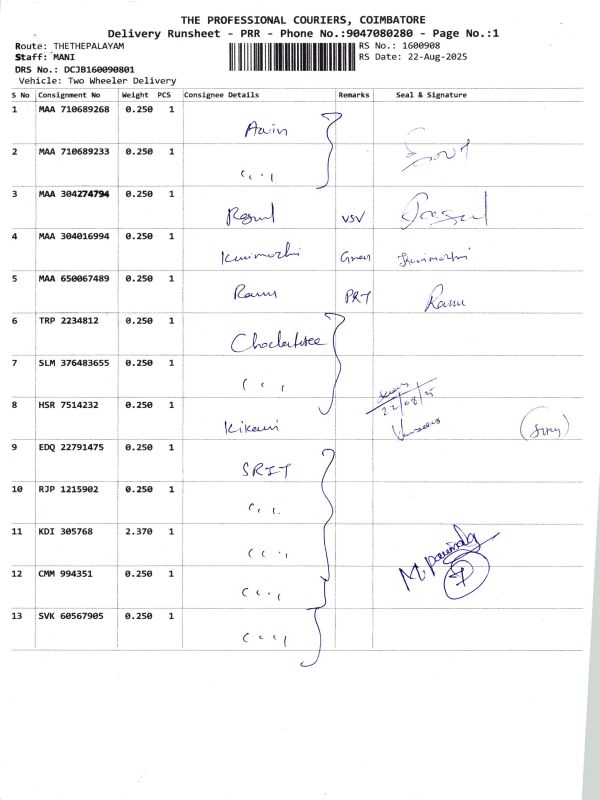 THE PROFESSIONAL COURIERS, COIMBATORE
Delivery Runsheet - PRR - Phone No.:9047080280 - Page No.:1
Route: THETHEPALAYAM
RS No.: 1600908
Staff: MANI
RS Date: 22-Aug-2025
DRS No.: DCJB160090801
Vehicle: Two Wheeler Delivery
S No Consignment No Weight PCS Consignee Details Remarks Seal & Signature
1 MAA 710689268 0.250 1
2 MAA 710689233 0.250 1
3 MAA 304274794 0.250 1 VSV
4 MAA 304016994 0.250 1 Kunimozhi
5 MAA 650067489 0.250 1 Ramu PRT Ramu
6 TRP 2234812 0.250 1
7 SLM 376483655 0.250 1
22/08/25
8 HSR 7514232 0.250 1 Kikani
9 EDQ 22791475 0.250 1 SRIT
10 RJP 1215902 0.250 1
11 KDI 305768 2.370 1
12 CMM 994351 0.250 1
13 SVK 60567905 0.250 1